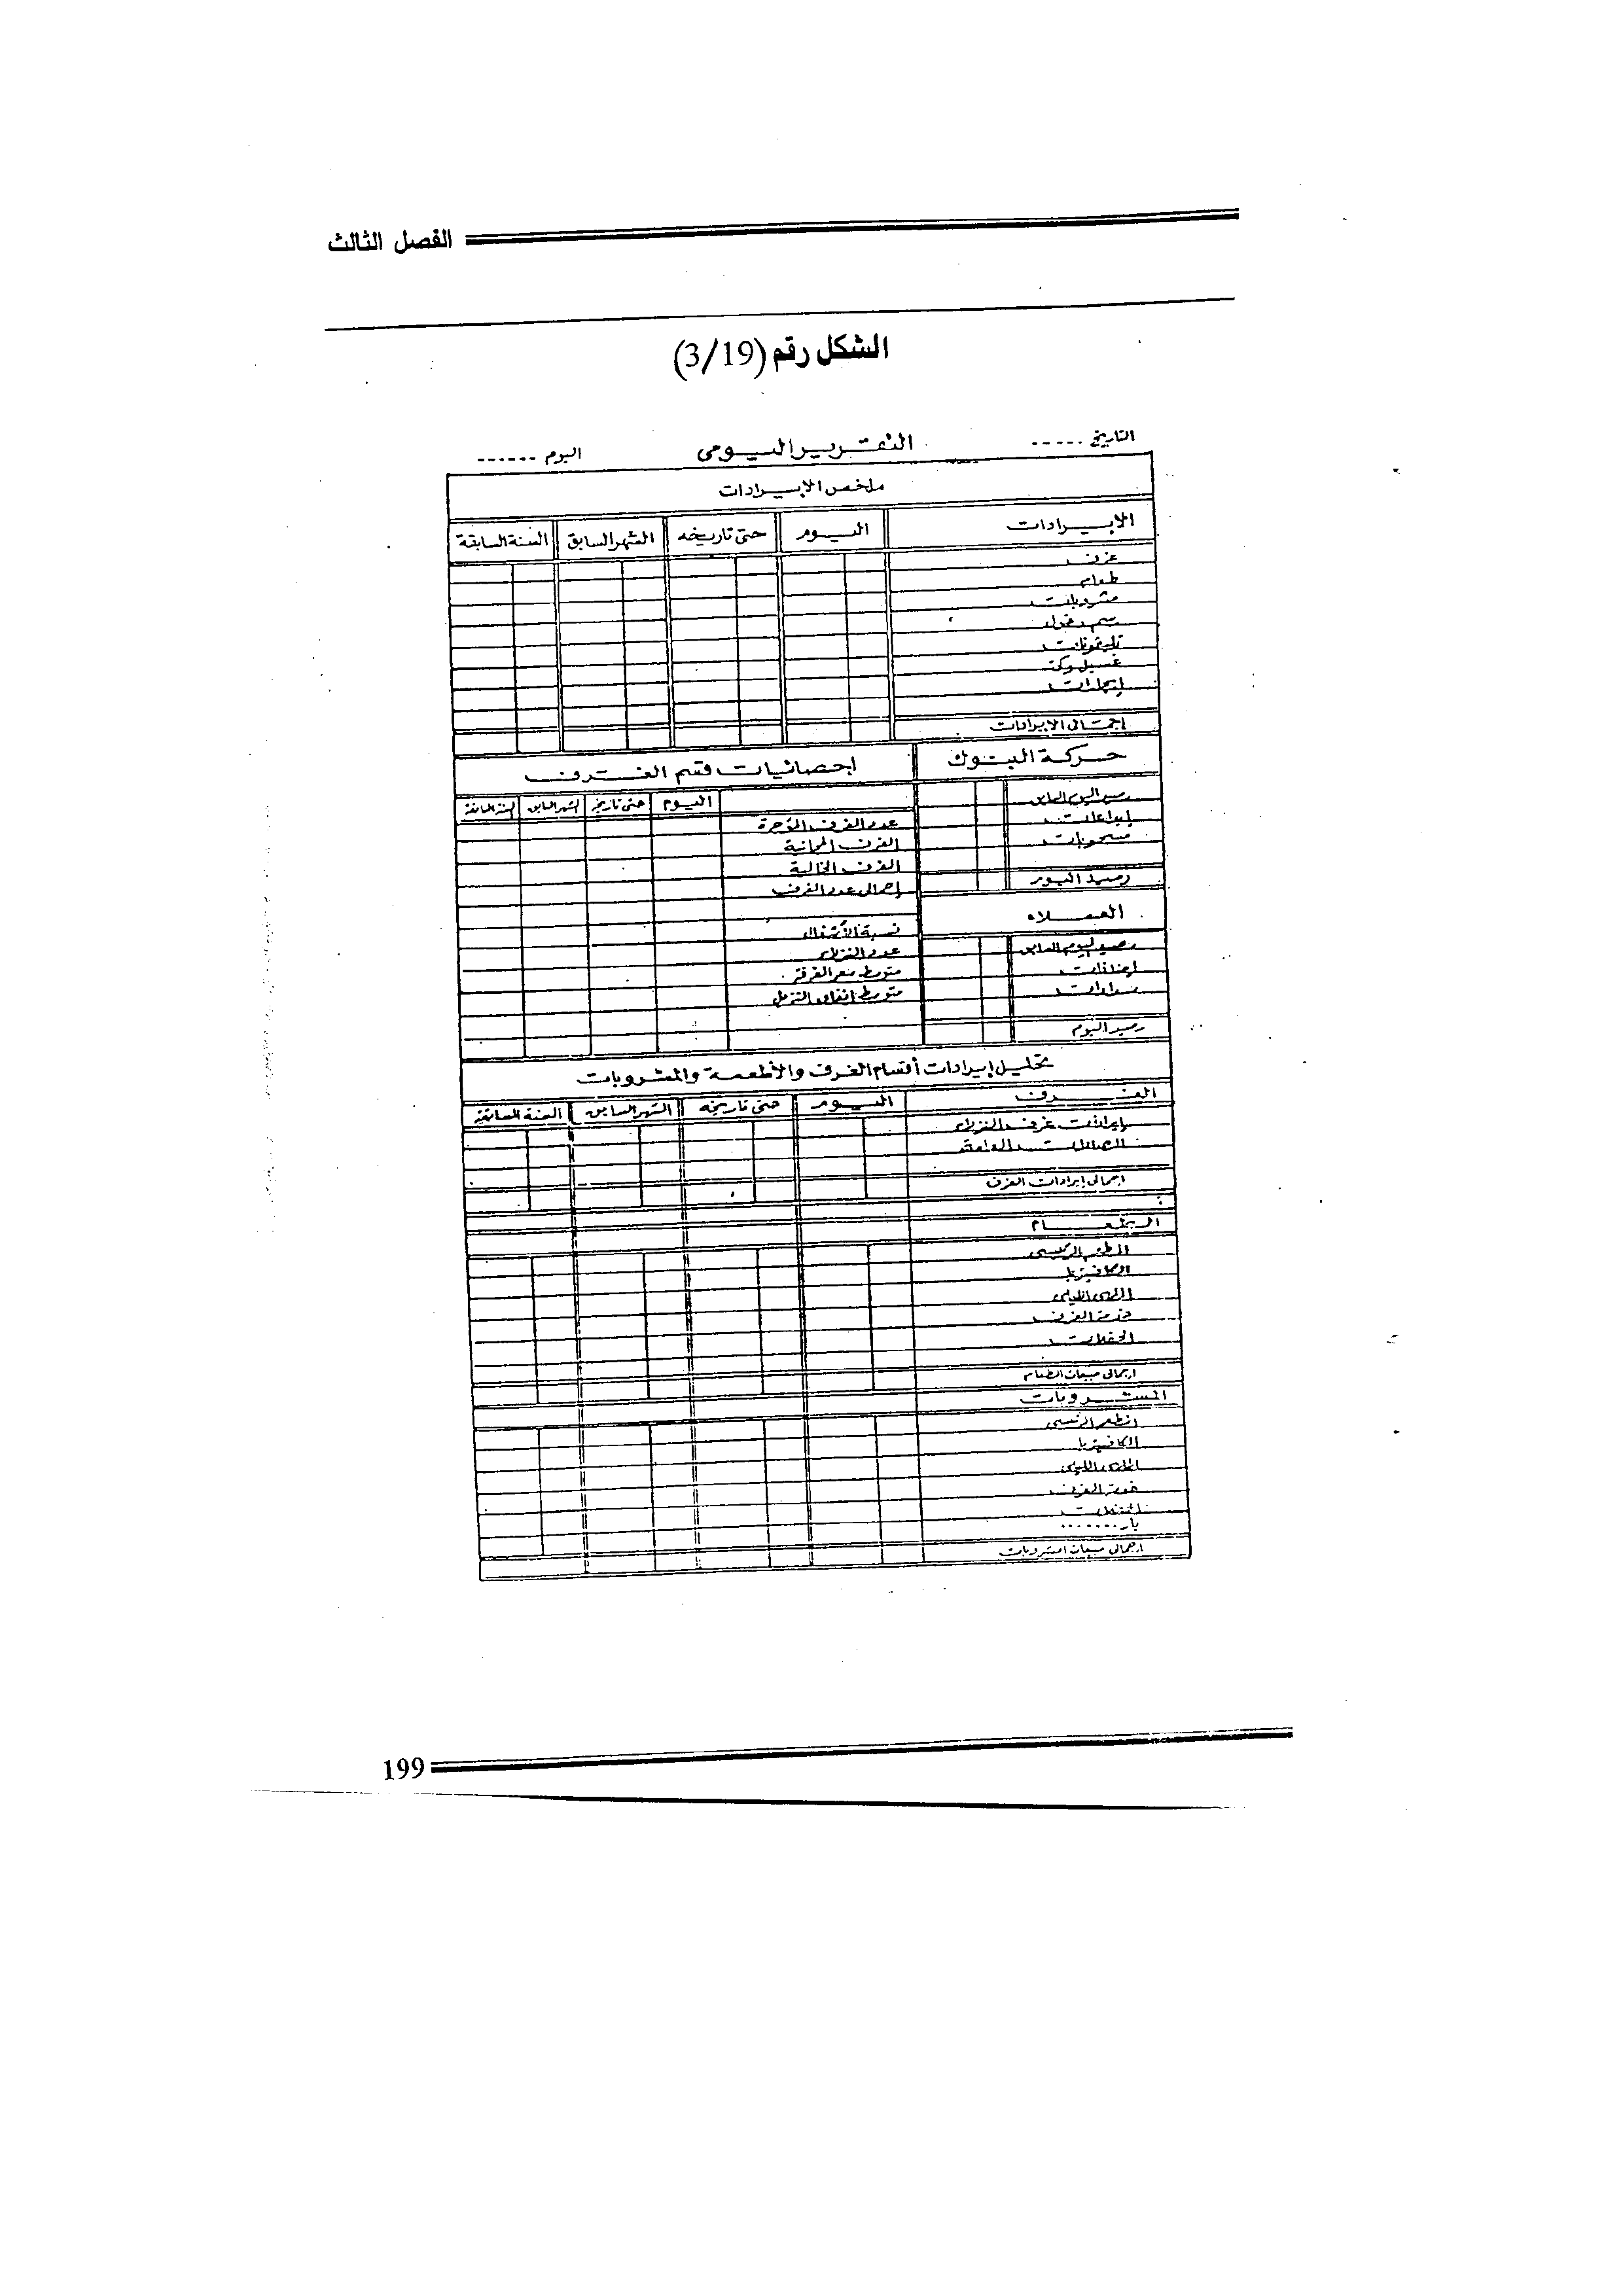 الفصل الثالث
الشكل رقم (3/19)
التاريخ ----- التقرير اليومى اليوم ------
ملخص الإيرادات
الإيرادات اليوم حتى تاريخه الشهر السابق السنة السابقة
غرف
طعام
مشروبات
رسم دخول
تليفونات
غسيل وكى
إيجارات
إجمالى الإيرادات
حركة البنوك
رصيد اليوم السابق
إيداعات
مسحوبات
رصيد اليوم
العملاء
رصيد اليوم السابق
إضافات
سدادات
رصيد اليوم
إحصائيات قسم الغرف
اليوم حتى تاريخه الشهر السابق السنة السابقة
عدد الغرف المؤجرة
الغرف المجانية
الغرف الخالية
إجمالى عدد الغرف
نسبة الأشغال
عدد النزلاء
متوسط سعر الغرفة
متوسط إنفاق النزيل
تحليل إيرادات أقسام الغرف والأطعمة والمشروبات
الغرف اليوم حتى تاريخه الشهر السابق السنة السابقة
إيرادات غرف النزلاء
الصالات العامة
إجمالى إيرادات الغرف
الطعام
المطعم الرئيسى
الكافيتريا
الملهى الليلى
خدمة الغرف
الحفلات
إجمالى مبيعات الطعام
المشروبات
المطعم الرئيسى
الكافيتريا
الملهى الليلى
خدمة الغرف
الحفلات
بار ........
إجمالى مبيعات المشروبات
199